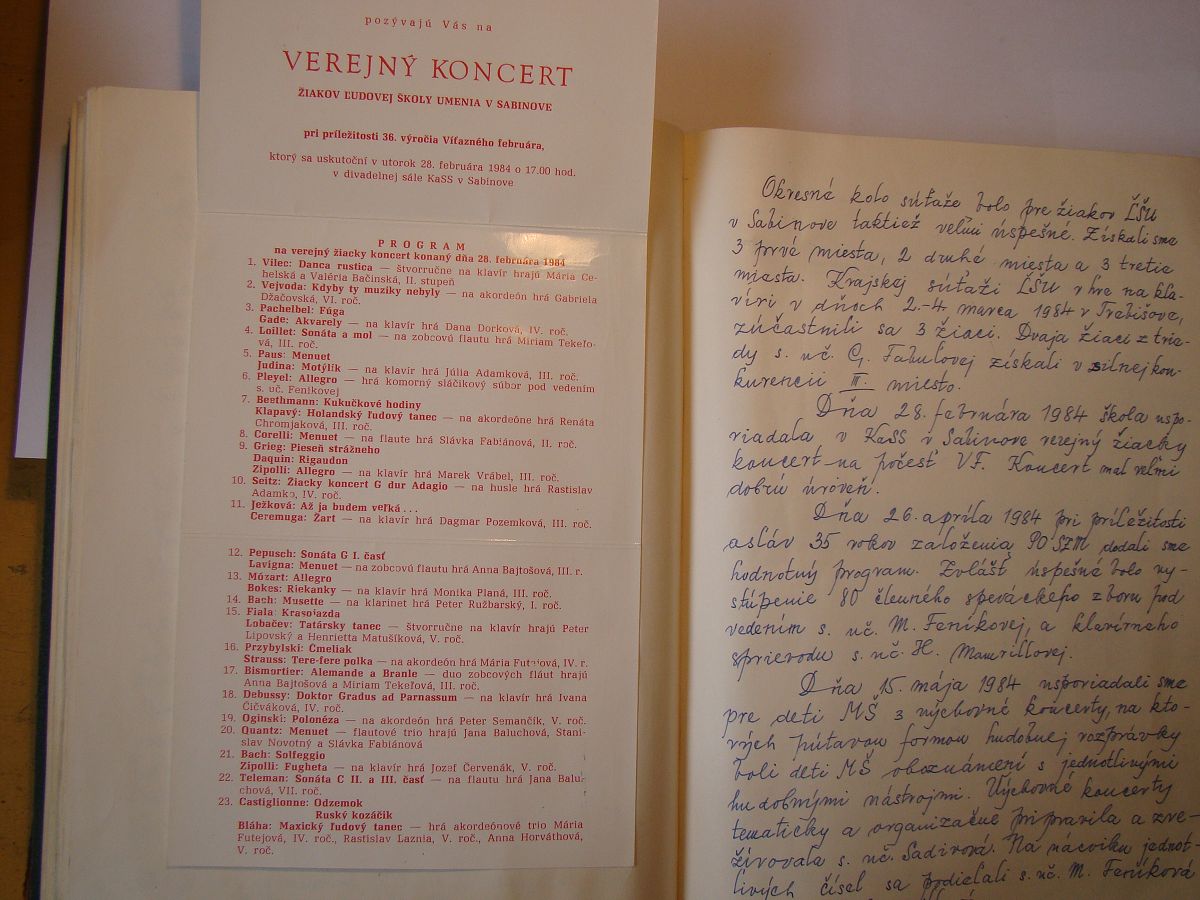 pozývajú Vás na
VEREJNÝ KONCERT
ŽIAKOV ĽUDOVEJ ŠKOLY UMENIA V SABINOVE
pri príležitosti 36. výročia Víťazného februára,
ktorý sa uskutoční v utorok 28. februára 1984 o 17.00 hod.
v divadelnej sále KaSS v Sabinove
PROGRAM
na verejný žiacky koncert konaný dňa 28. februára 1984
1. Vilec: Danca rustica — štvorručne na klavír hrajú Mária Ce-
helská a Valéria Bačinská, II. stupeň
2. Vejvoda: Kdyby ty muziky nebyly — na akordeón hrá Gabriela
Džačovská, VI. roč.
3. Pachelbel: Fúga
Gade: Akvarely — na klavír hrá Dana Dorková, IV. roč.
4. Loillet: Sonáta a mol — na zobcovú flautu hrá Miriam Tekeľo-
vá, III. roč.
5. Paus: Menuet
Judina: Motýlik — na klavír hrá Júlia Adamková, III. roč.
6. Pleyel: Allegro — hrá komorný sláčikový súbor pod vedením
s. uč. Feníkovej
7. Beethmann: Kukučkové hodiny
Klapavý: Holandský ľudový tanec — na akordeóne hrá Renáta
Chromjaková, III. roč.
8. Corelli: Menuet — na flaute hrá Slávka Fabiánová, II. roč.
9. Grieg: Pieseň strážneho
Daquin: Rigaudon
Zipolli: Allegro — na klavír hrá Marek Vrábel, III. roč.
10. Seitz: Žiacky koncert G dur Adagio — na husle hrá Rastislav
Adamko, IV. roč.
11. Ježková: Až ja budem veľká . . .
Ceremuga: Žart — na klavír hrá Dagmar Pozemková, III. roč.
12. Pepusch: Sonáta G I. časť
Lavigna: Menuet — na zobcovú flautu hrá Anna Bajtošová, III. r.
13. Mózart: Allegro
Bokes: Riekanky — na klavír hrá Monika Planá, III. roč.
14. Bach: Musette — na klarinet hrá Peter Ružbarský, I. roč.
15. Fiala: Krasojazda
Lobačev: Tatársky tanec — štvorručne na klavír hrajú Peter
Lipovský a Henrietta Matušíková, V. roč.
16. Przybylski: Čmeliak
Strauss: Tere-fere polka — na akordeón hrá Mária Futejová, IV. r.
17. Bismortier: Alemande a Branle — duo zobcových fláut hrajú
Anna Bajtošová a Miriam Tekeľová, III. roč.
18. Debussy: Doktor Gradus ad Parnassum — na klavír hrá Ivana
Čičváková, IV. roč.
19. Oginski: Polonéza — na akordeón hrá Peter Semančík, V. roč.
20. Quantz: Menuet — flautové trio hrajú Jana Baluchová, Stani-
slav Novotný a Slávka Fabiánová
21. Bach: Solfeggio
Zipolli: Fugheta — na klavír hrá Jozef Červenák, V. roč.
22. Teleman: Sonáta C II. a III. časť — na flautu hrá Jana Balu-
chová, VII. roč.
23. Castiglionne: Odzemok
Ruský kozáčik
Bláha: Maxický ľudový tanec — hrá akordeónové trio Mária
Futejová, IV. roč., Rastislav Laznia, V. roč., Anna Horváthová,
V. roč.
Okresné kolo súťaže bolo pre žiakov ĽŠU
v Sabinove taktiež veľmi úspešné. Získali sme
3 prvé miesta, 2 druhé miesta a 3 tretie
miesta. Krajskej súťaži ĽŠU v hre na kla-
víri v dňoch 2.-4. marca 1984 v Trebišove,
zúčastnili sa 3 žiaci. Dvaja žiaci z trie-
dy s. uč. G. Fabuľovej získali v silnej kon-
kurencii III. miesto.
Dňa 28. februára 1984 škola uspo-
riadala v KaSS v Sabinove verejný žiacky
koncert na počesť VF. Koncert mal veľmi
dobrú úroveň.
Dňa 26. apríla 1984 pri príležitosti
osláv 35 rokov založenia PO SZM dodali sme
hodnotný program. Zvlášť úspešné bolo vy-
stúpenie 80 členného speváckeho zboru pod
vedením s. uč. M. Feníkovej, a klavírneho
sprievodu s. uč. H.
Dňa 15. mája 1984 usporiadali sme
pre deti MŠ 3 výchovné koncerty, na kto-
rých pútavou formou hudobnej rozprávky
boli deti MŠ oboznámení s jednotlivými
hudobnými nástrojmi. Výchovné koncerty
tematičky a organizačne pripravila a zve-
s. uč. Sadivová. Na nácviku jednot-
livých čísel sa podieľali s. uč. M. Feníková